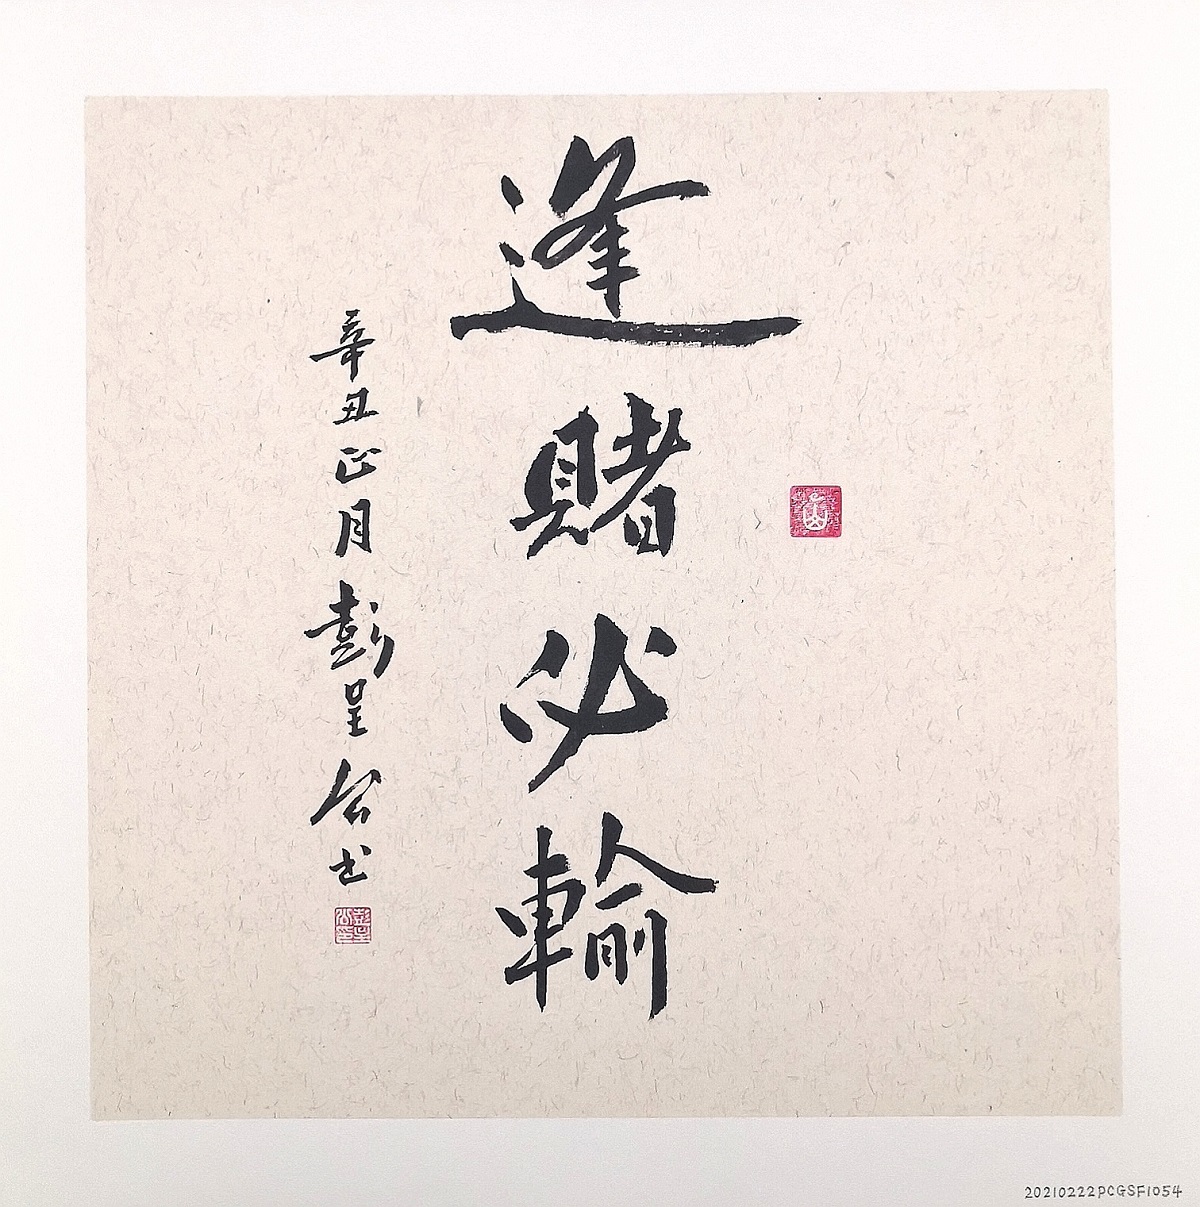 逢賭必輸
辛丑正月彭呈公书
彭呈公印
20210222PCGSF1054